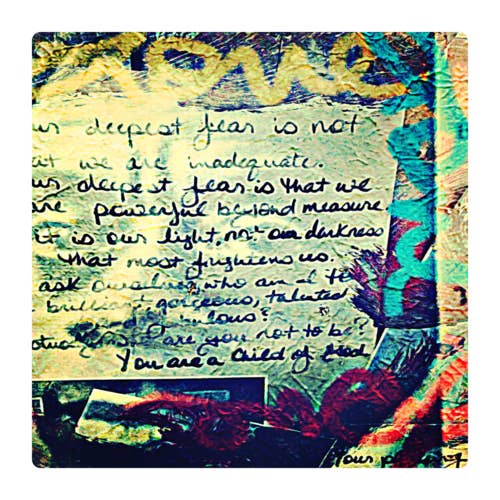 ur deepest fear is not
at we are inadequate.
ur deepest fear is that we
are powerful beyond measure.
it is our light, not our darkness
that most frightens us.
ask ourselves, who am I to
brilliant, gorgeous, talented
ulous?
are you not to be?
You are a Child of God
Your p